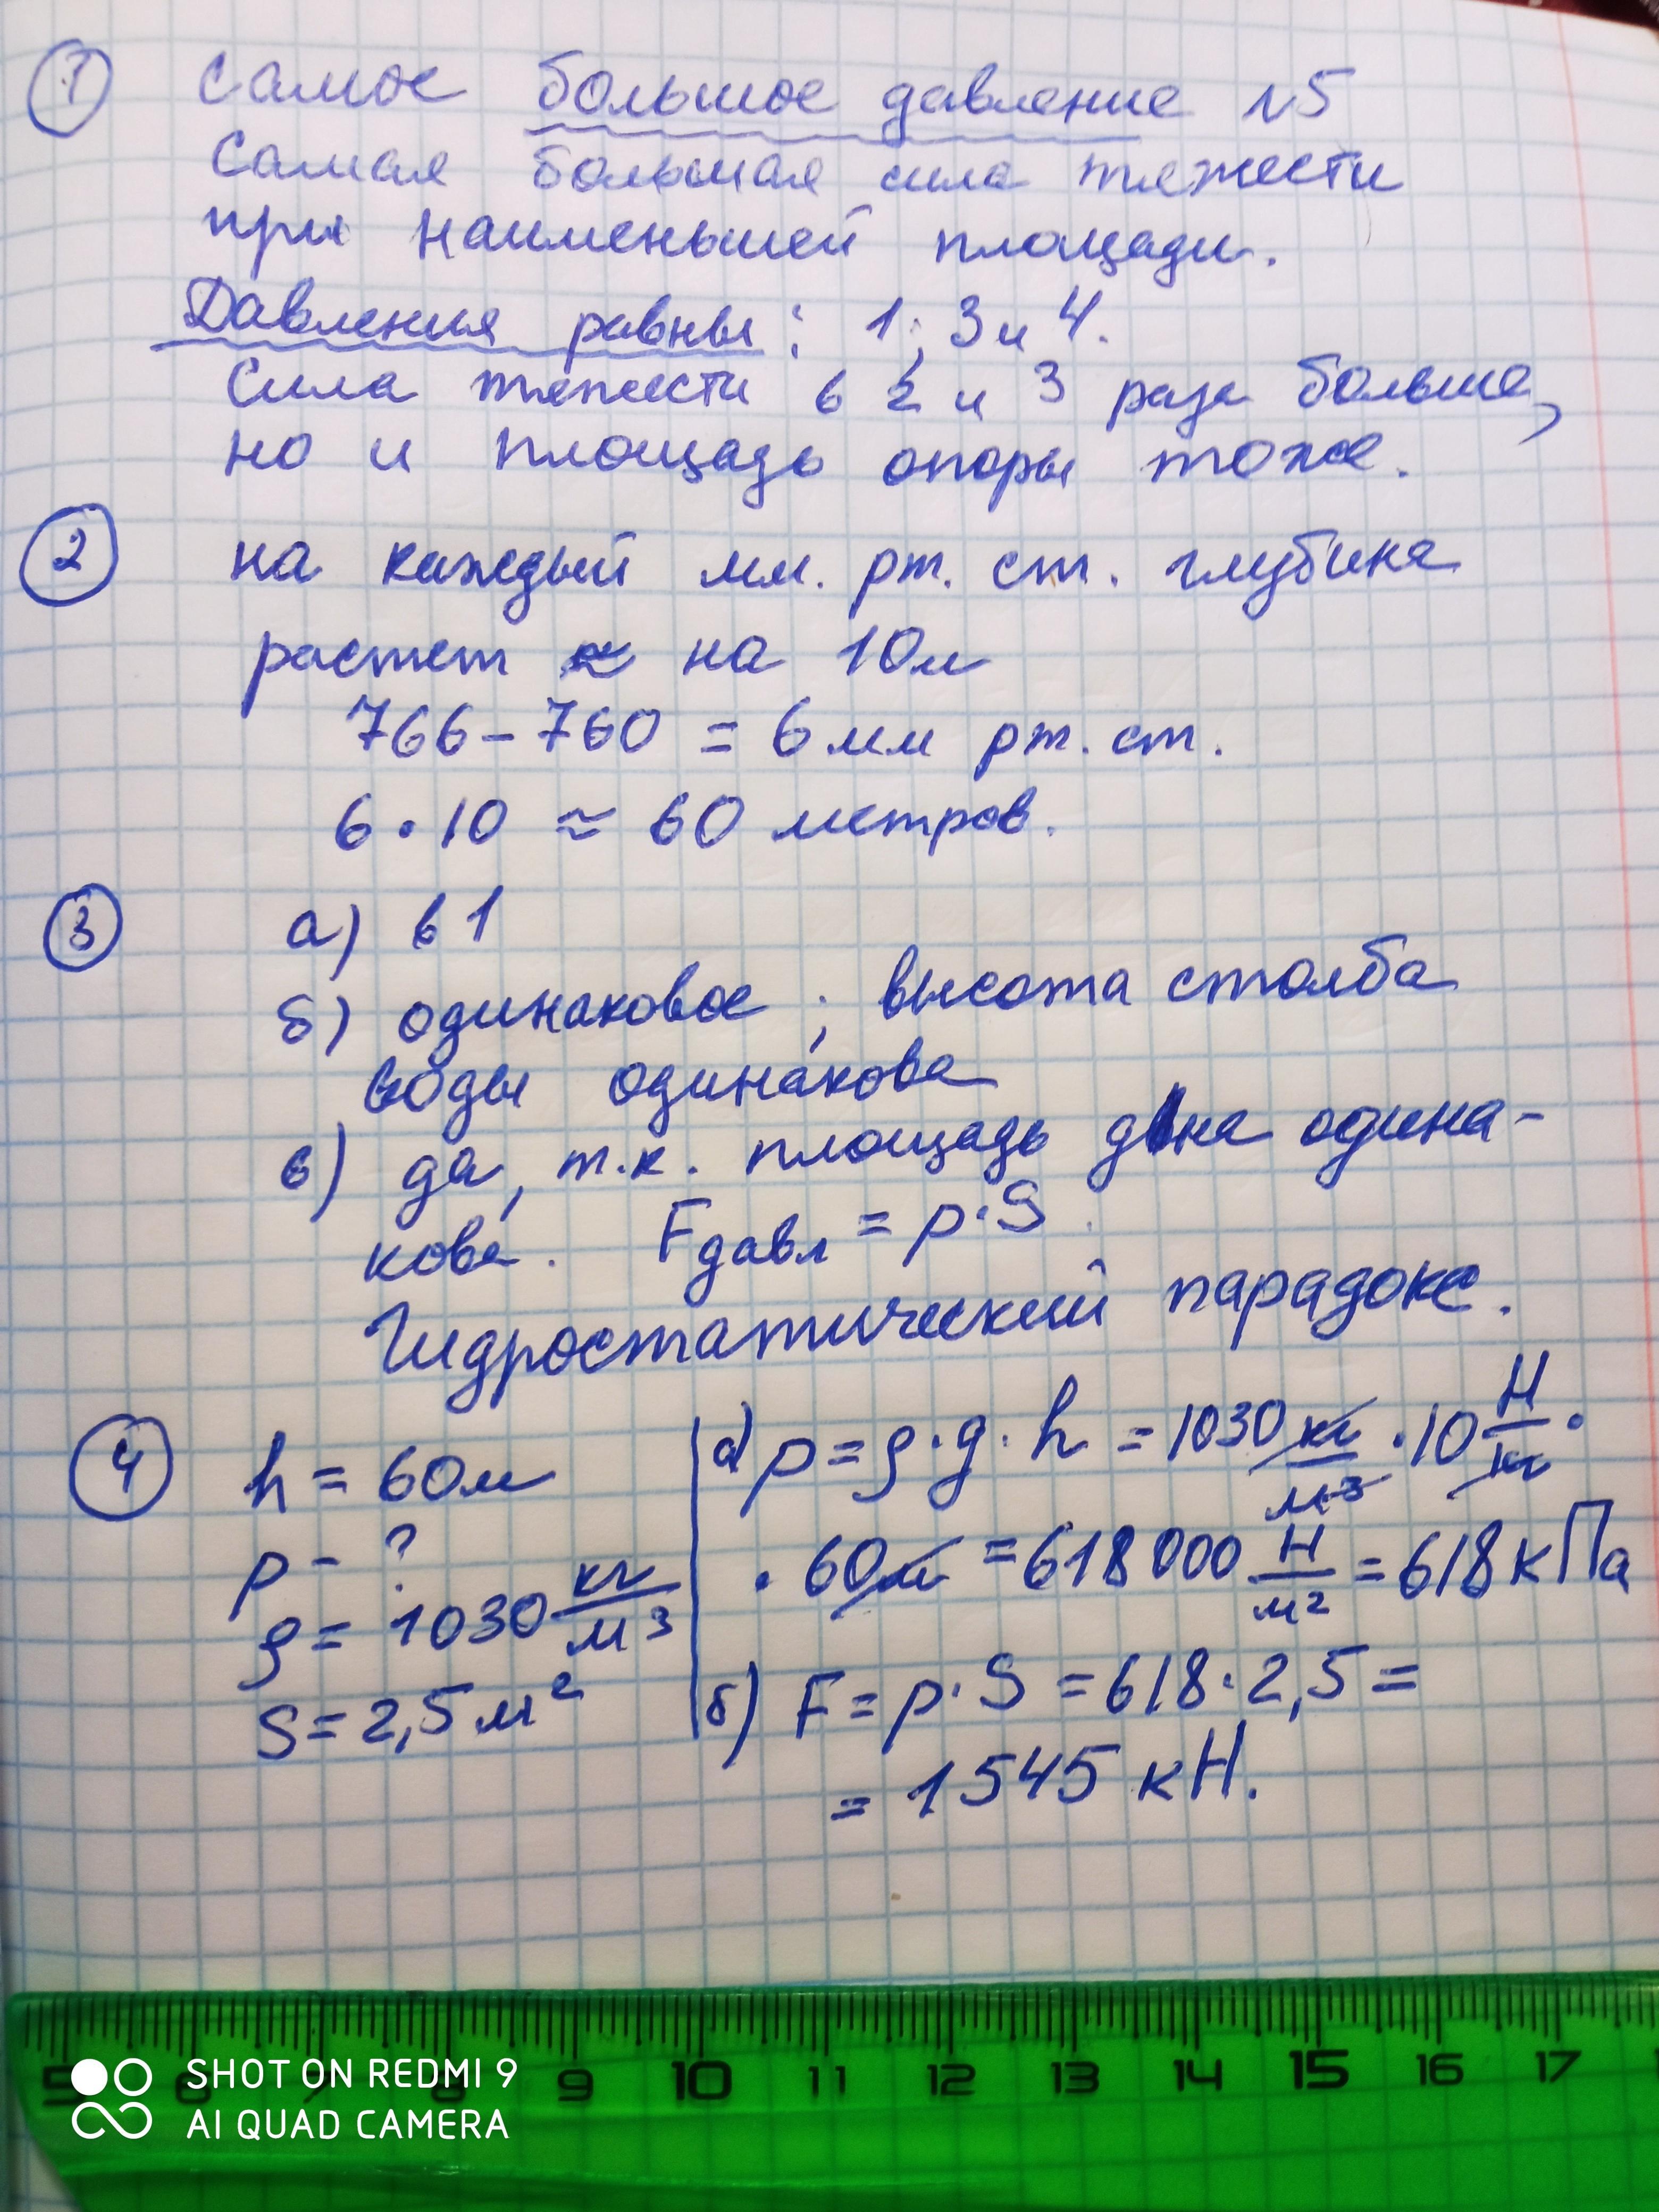 1 Самое большое давление №5
Самая большая сила тяжести
при наименьшей площади.
Давления равны: 1; 3 и 4.
Сила тяжести в 2 и 3 раза больше,
но и площадь опоры тоже.
2 на каждый мм. рт. ст. глубина
растет ≈ на 10м
766 - 760 = 6 мм рт. ст.
6 · 10 ≈ 60 метров.
3 а) в 1
б) одинаковое; высота столба
воды одинакова
в) да, т.к. площадь дна одина-
кова. Fдавл = p·S.
Гидростатический парадокс.
4 h = 60м
p - ?
ρ = 1030 кг/м³
S = 2,5 м²
а) p = ρ·g·h = 1030 кг/м³ · 10 Н/кг ·
· 60м = 618000 Н/м² = 618 кПа
б) F = p·S = 618·2,5 =
= 1545 кН.
5 6 7 8 9 10 11 12 13 14 15 16 17
SHOT ON REDMI 9
AI QUAD CAMERA